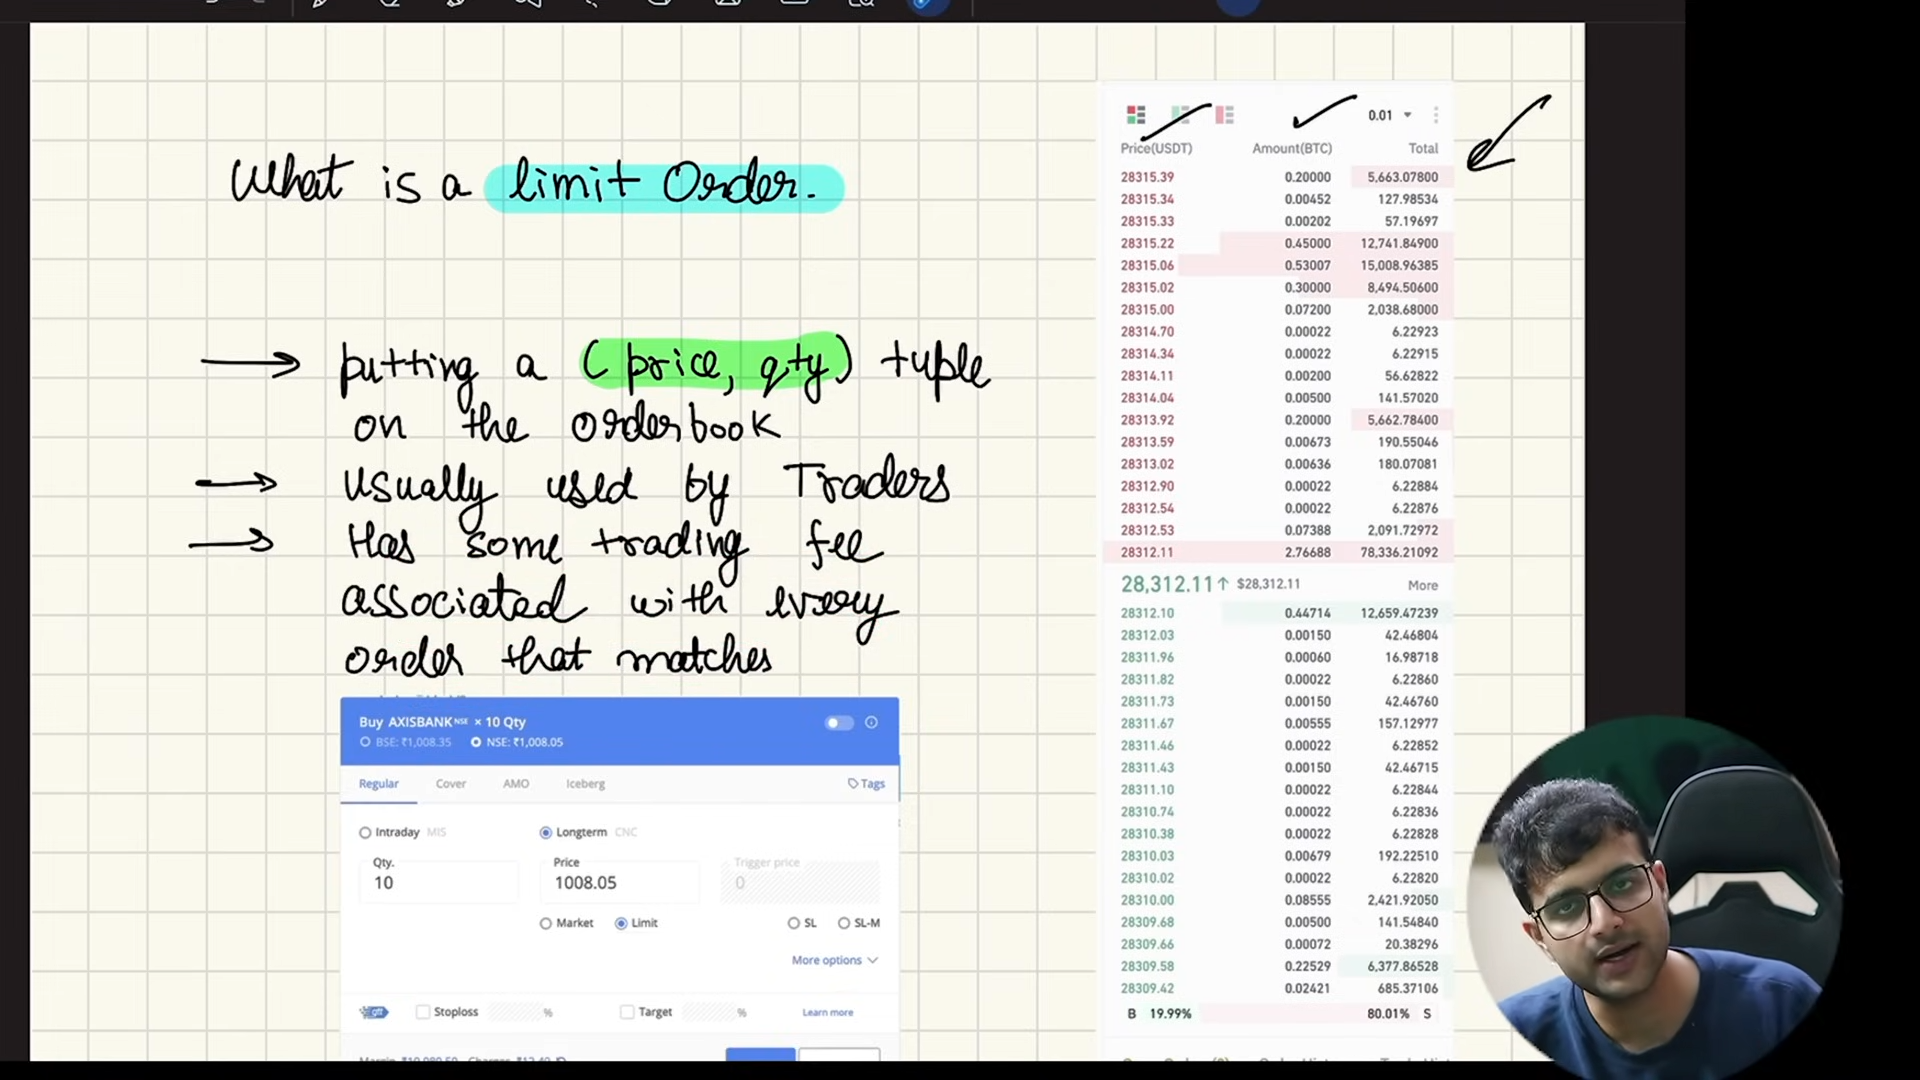 What is a limit Order.
→ putting a (price, qty) tuple
on the orderbook
→ Usually used by Traders
→ Has some trading fee
associated with every
order that matches
Buy AXISBANK NSE × 10 Qty
BSE: ₹1,008.35 NSE: ₹1,008.05
Regular Cover AMO Iceberg Tags
Intraday MIS Longterm CNC
Qty. Price Trigger price
10 1008.05 0
Market Limit SL SL-M
More options
Stoploss % Target % Learn more
0.01
Price(USDT) Amount(BTC) Total
28315.39 0.20000 5,663.07800
28315.34 0.00452 127.98534
28315.33 0.00202 57.19697
28315.22 0.45000 12,741.84900
28315.06 0.53007 15,008.96385
28315.02 0.30000 8,494.50600
28315.00 0.07200 2,038.68000
28314.70 0.00022 6.22923
28314.34 0.00022 6.22915
28314.11 0.00200 56.62822
28314.04 0.00500 141.57020
28313.92 0.20000 5,662.78400
28313.59 0.00673 190.55046
28313.02 0.00636 180.07081
28312.90 0.00022 6.22884
28312.54 0.00022 6.22876
28312.53 0.07388 2,091.72972
28312.11 2.76688 78,336.21092
28,312.11↑ $28,312.11 More
28312.10 0.44714 12,659.47239
28312.03 0.00150 42.46804
28311.96 0.00060 16.98718
28311.82 0.00022 6.22860
28311.73 0.00150 42.46760
28311.67 0.00555 157.12977
28311.46 0.00022 6.22852
28311.43 0.00150 42.46715
28311.10 0.00022 6.22844
28310.74 0.00022 6.22836
28310.38 0.00022 6.22828
28310.03 0.00679 192.22510
28310.02 0.00022 6.22820
28310.00 0.08555 2,421.92050
28309.68 0.00500 141.54840
28309.66 0.00072 20.38296
28309.58 0.22529 6,377.86528
28309.42 0.02421 685.37106
B 19.99% 80.01% S